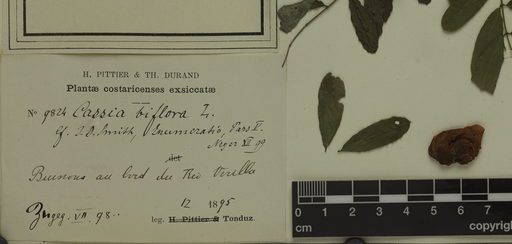 H. PITTIER & TH. DURAND
Plantæ costaricenses exsiccatæ
No 9824 Cassia biflora L.
cf. J.D. Smith, Enumeratio, Pars V.
VII 99
det
Buissons au bord du Rio Virilla
12 1895
VII 98.
leg. H. Pittier & Tonduz.
cm 1 2 3 4 5 6 7
copyrigh